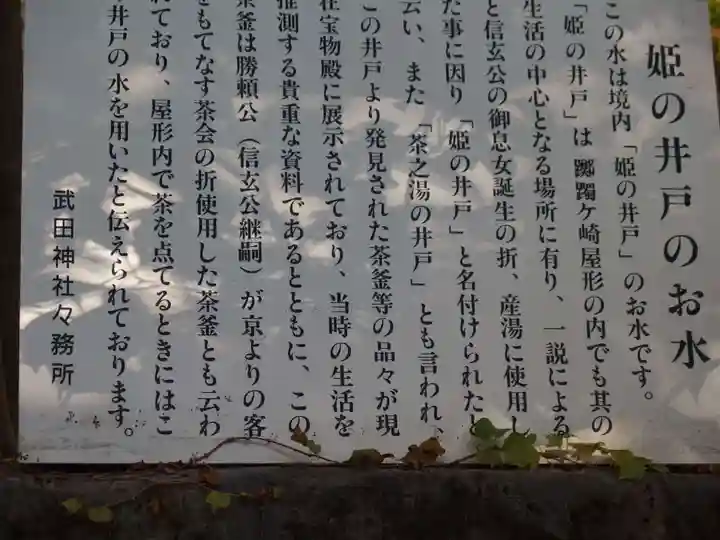 姫の井戸のお水
この水は境内「姫の井戸」のお水です。
「姫の井戸」は躑躅ケ崎屋形の内でも其の
生活の中心となる場所に有り、一説による
と信玄公の御息女誕生の折、産湯に使用し
た事に因り「姫の井戸」と名付けられたと
云い、また「茶之湯の井戸」とも言われ、
この井戸より発見された茶釜等の品々が現
在宝物殿に展示されており、当時の生活を
推測する貴重な資料であるとともに、この
茶釜は勝頼公（信玄公継嗣）が京よりの客
をもてなす茶会の折使用した茶釜とも云わ
れており、屋形内で茶を点てるときにはこ
井戸の水を用いたと伝えられております。
武田神社々務所